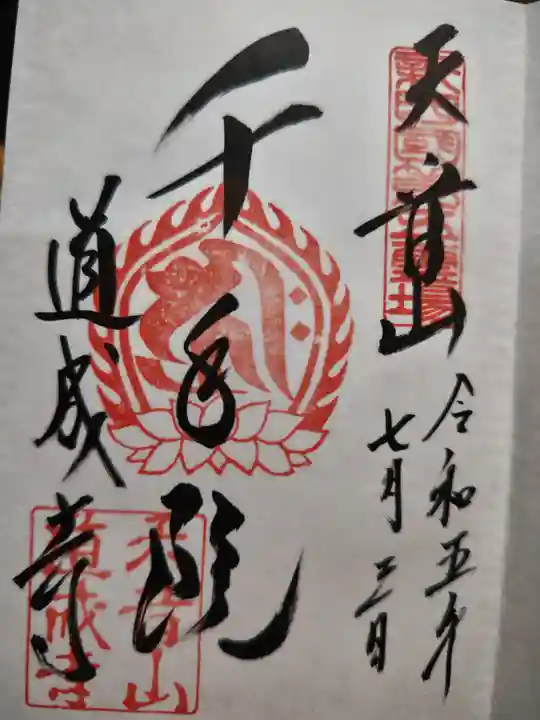 天音山
令和五年
七月三日
千手院
道成寺
天音山
道成寺